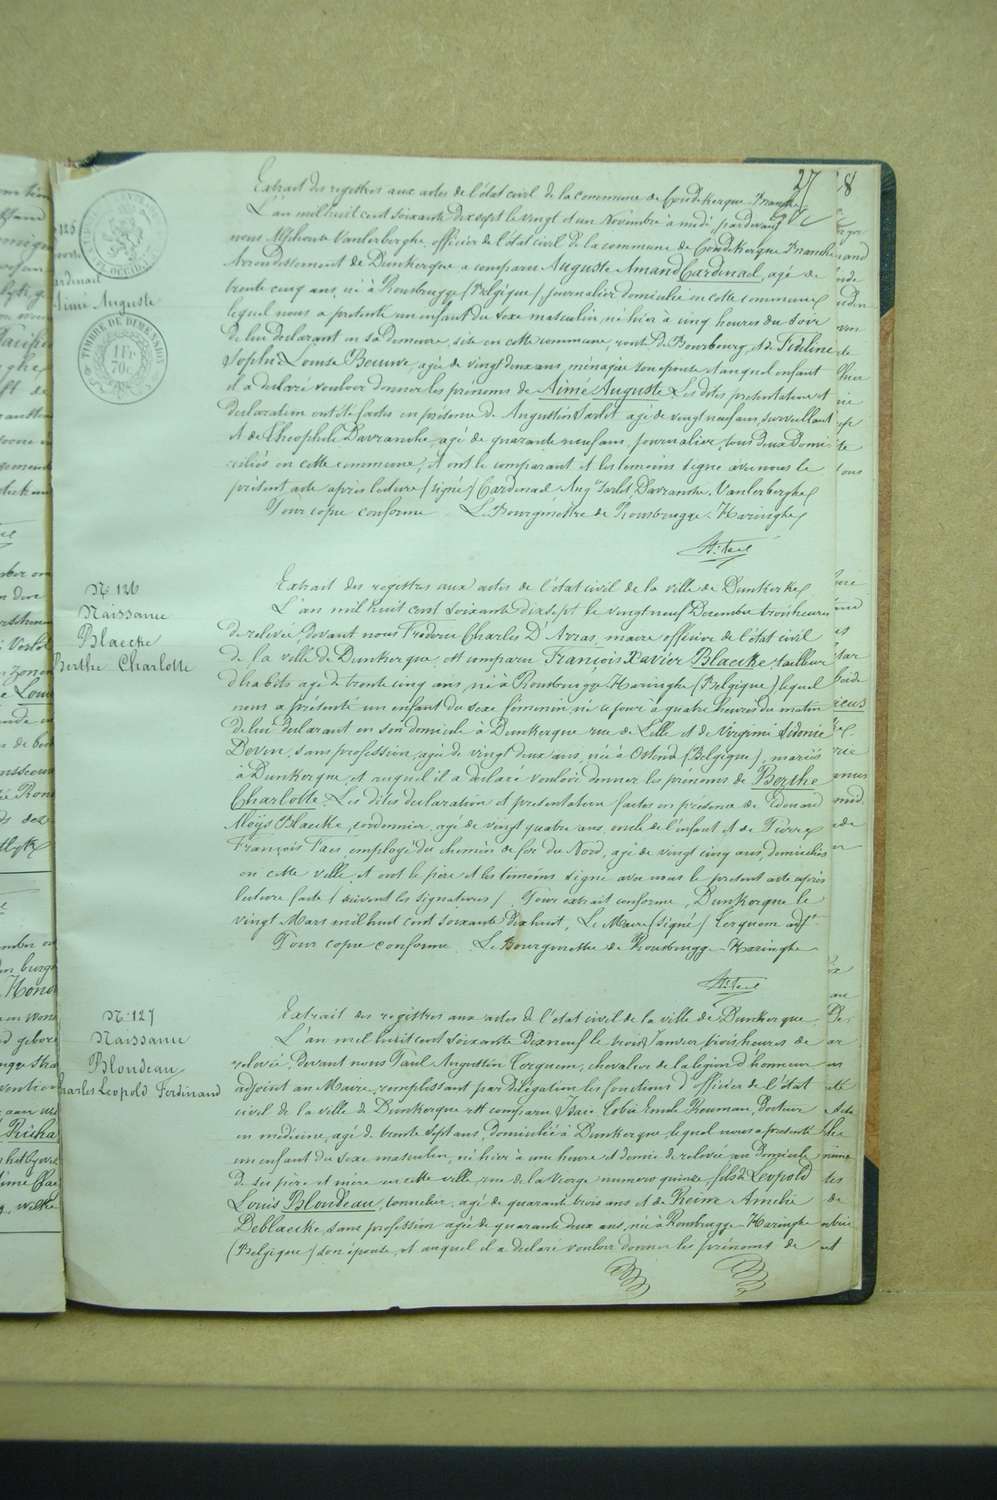 27
28
Extrait des registres aux actes de l'état civil de la commune de Coudekerque France
L'an mil huit cent soixante dix sept le vingt et un Novembre à midi pardevant
nous Alphonse Vanlerberghe, officier de l'état civil de la commune de Coudekerque Branche
Arrondissement de Dunkerque a comparu Auguste Amand Cardinael, agé de
trente cinq ans, né à Rousbrugge (Belgique) journalier domicilié en cette commune
lequel nous a présenté un enfant du sexe masculin, né hier à cinq heures du soir
de lui déclarant en sa demeure, sise en cette commune, route de Bourbourg, et de
Sophie Louise Beuwe, agée de vingt deux ans, ménagère son épouse et auquel enfant
il a déclaré vouloir donner les prénoms de Aimé Auguste. Les dites présentation et
déclaration ont été faites en présence de Augustin Sarlet agé de vingt neuf ans, surveillant
et de Théophile Davranche, agé de quarante neuf ans, journalier, tous deux domi-
ciliés en cette commune, et ont le comparant et les témoins signé avec nous le
présent acte après lecture (signé) Cardinael Aug. Sarlet, Davranche. Vanlerberghe
Pour copie conforme Le Bourgmestre de Rousbrugge-Haringhe
125
Cardinael
Aimé Auguste
TIMBRE DE DIMENSION
1 FR
70 C
N° 126
Naissance
Blaecke
Berthe Charlotte
Extrait des registres aux actes de l'état civil de la ville de Dunkerke
L'an mil huit cent soixante dix sept le vingt neuf Décembre trois heures
de relevée, devant nous Frédéric Charles D'Arras, maire officier de l'état civil
de la ville de Dunkerque, est comparu François Xavier Blaecke, tailleur
d'habits agé de trente cinq ans, né à Rousbrugge Haringhe (Belgique) lequel
nous a présenté un enfant du sexe féminin, né ce jour à quatre heures du matin
de lui déclarant en son domicile à Dunkerque rue de Lille et de Virginie Sidonie
Devin, sans profession, agée de vingt deux ans, née à Ostend (Belgique), mariés
à Dunkerque, et auquel il a déclaré vouloir donner les prénoms de Berthe
Charlotte. Les dites déclaration et présentation faites en présence de Edouard
Aloÿs Blaecke, cordonnier, agé de vingt quatre ans, oncle de l'enfant et de Pierre
François Faes, employé du chemin de fer du Nord, agé de vingt cinq ans, domiciliés
en cette ville et ont le père et les témoins signé avec nous le présent acte après
lecture faite (suivent les signatures). Pour extrait conforme, Dunkerque le
vingt Mars mil huit cent soixante dix huit. Le Maire (signé) Terquem adjt
Pour copie conforme. Le Bourgmestre de Rousbrugge-Haringhe
N° 127
Naissance
Blondeau
Charles Leopold Ferdinand
Extrait des registres aux actes de l'état civil de la ville de Dunkerque
L'an mil huit cent soixante Dix neuf le trois Janvier trois heures de
relevée, devant nous Paul Augustin Terquem, chevalier de la légion d'honneur
adjoint au Maire, remplissant par délégation les fonctions d'officier de l'état
civil de la ville de Dunkerque est comparu Isaïe Tobie Emile Reumaux, Docteur
en médecine, agé de trente sept ans, domicilié à Dunkerque, lequel nous a présenté
un enfant du sexe masculin, né hier à une heure et demie de relevée au domicile
de ses père et mère en cette ville, rue de la Vierge numero quinze, fils de Leopold
Louis Blondeau, tonnelier, agé de quarante trois ans et de Reine Amelie
Deblaecke, sans profession agée de quarante deux ans, née à Rousbrugge-Haringhe
(Belgique) son épouse, et auquel il a déclaré vouloir donner les prénoms de